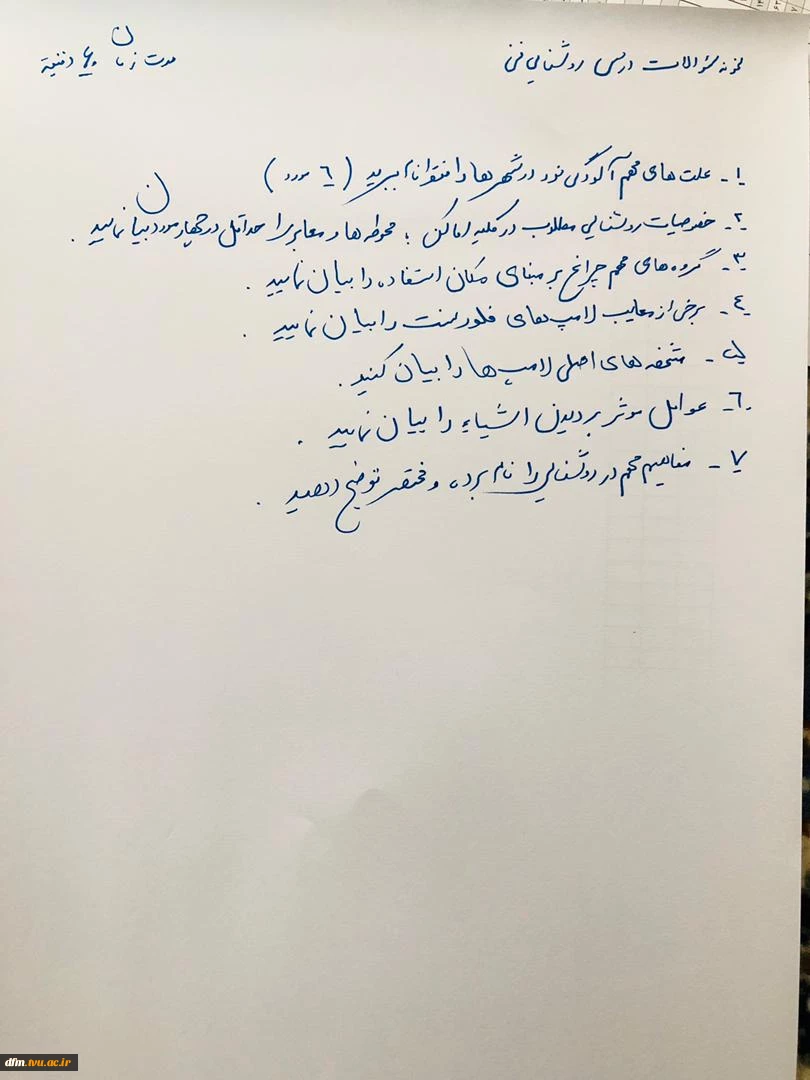 نمونه سئوالات درس روشنایی فنی
مدت زمان دقیقه
۱- علت های مهم آلودگی نور در شهرها را نام ببرید (٦ مورد)
۲- خصوصیات روشنایی مطلوب در کلیه اماکن ، محوطه ها و معابر را حداقل در چهار مورد بیان نمایید .
۳- گروه های مهم چراغ بر مبنای مکان استفاده را بیان نمایید .
٤- برخی از معایب لامپ های فلورسنت را بیان نمایید .
۵- مشخصه های اصلی لامپ ها را بیان کنید .
٦- عوامل موثر بر دیدن اشیاء را بیان نمایید .
۷- مفاهیم مهم در روشنایی را نام برده و مختصر توضیح دهید .
dfm.tvu.ac.ir